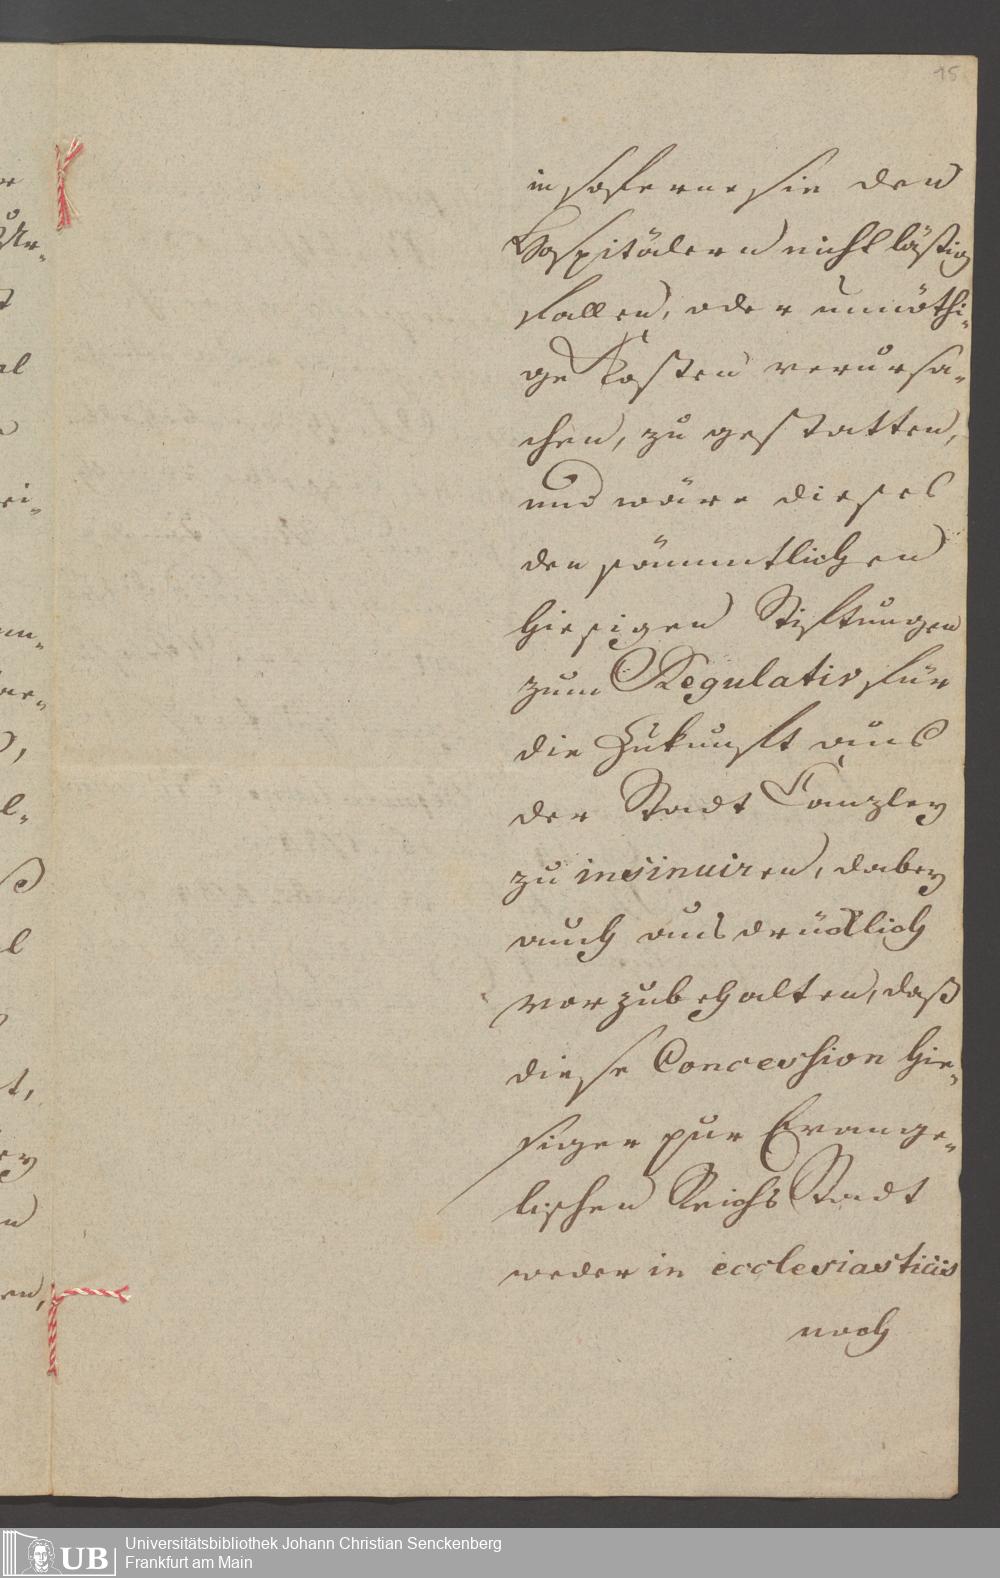 15
in soferne sie den
Hospitälern nicht lästig
fallen, oder unnöthi-
ge Kosten verursa-
chen, zu gestatten,
und wäre dieses
den sämmtlichen
hiesigen Stiftungen
zum Regulativ für
die Zukunft aus
der Stadt Canzley
zu insinuiren, dabey
auch ausdrücklich
vorzubehalten, daß
diese Concession hie-
siger pur Evange-
lischen Reichs Stadt
weder in ecclesiasticis
noch
Universitätsbibliothek Johann Christian Senckenberg
Frankfurt am Main
UB